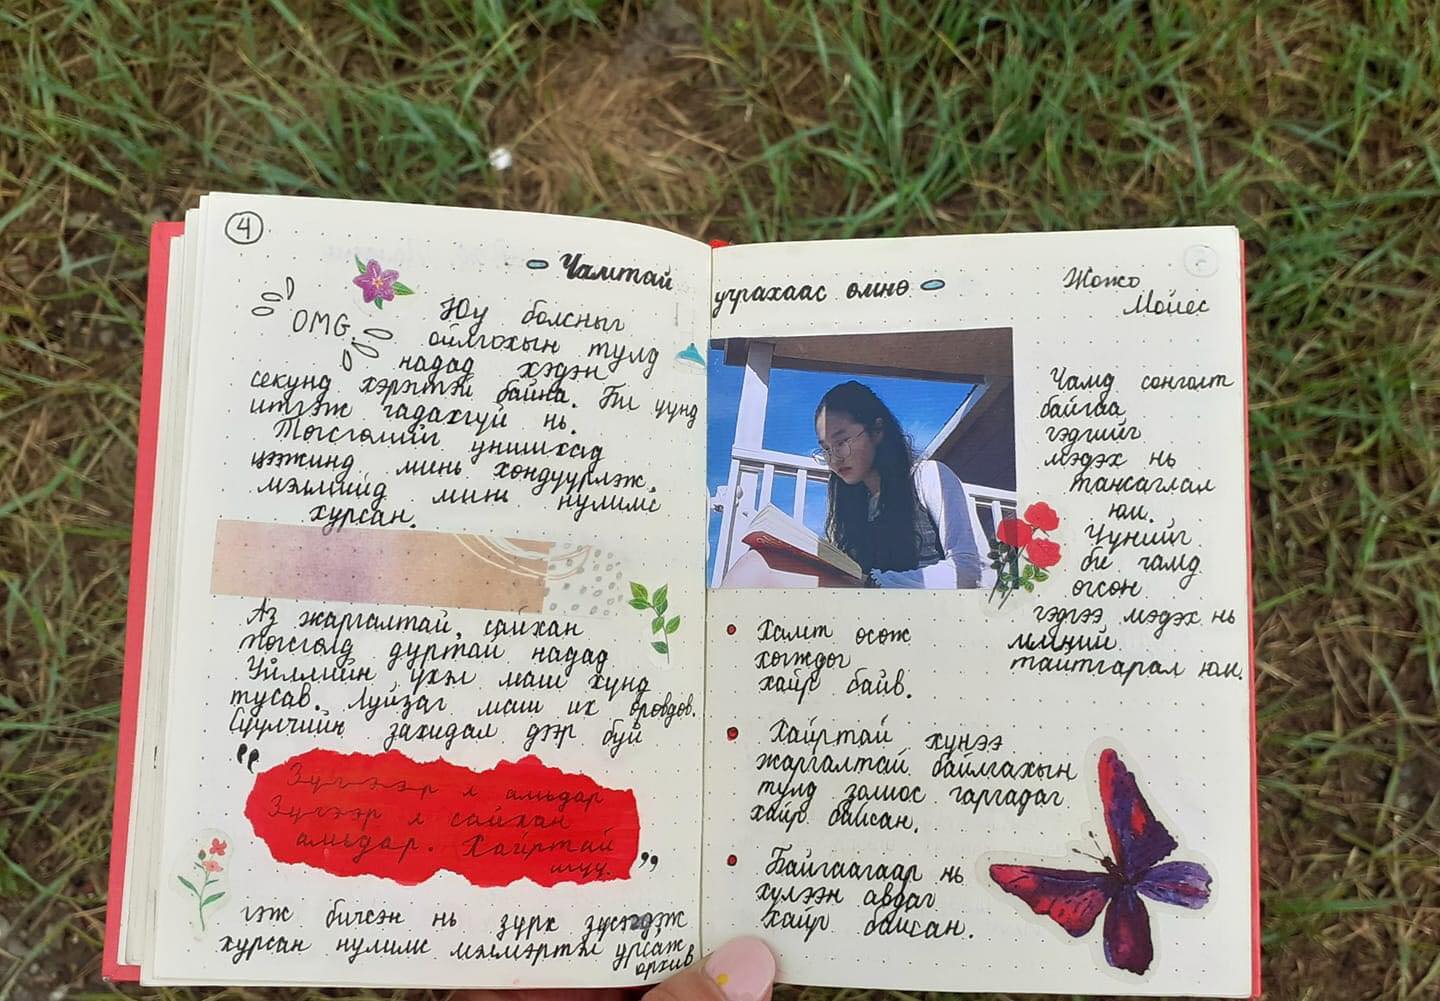 4
Чамтай учрахаас өмнө
Жожо
Мойес
OMG
Юу болсныг
ойлгохын тулд
надад хэдэн
секунд хэрэгтэй байна. Би үүнд
итгэж чадахгүй нь.
Төгсгөлийг уншихад
цээжинд минь хөндүүрлэж,
мэлмийд минь нулимс
хурсан.
Аз жаргалтай, сайхан
төгсгөлд дуртай надад
Уйллийн үхэл маш хүнд
тусав. Луйзаг маш их өрөвдөв.
Сүүлчийн захидал дээр буй
" Зүгээр л амьдар
Зүгээр л сайхан
амьдар. Хайртай
шүү. "
гэж бичсэн нь зүрх зүсэгдэж
хурсан нулимс мэлмэртэл урсаж
орхив
Чамд сонголт
байгаа
гэдгийг
мэдэх нь
тансаглал
юм.
Үүнийг
би чамд
өгсөн
гэдгээ мэдэх нь
миний
тайтгарал юм.
Хамт өсөж
хөгждөг
хайр байв.
Хайртай хүнээ
жаргалтай байлгахын
тулд золиос гаргадаг
хайр байсан.
Байгаагаар нь
хүлээн авдаг
хайр байсан.